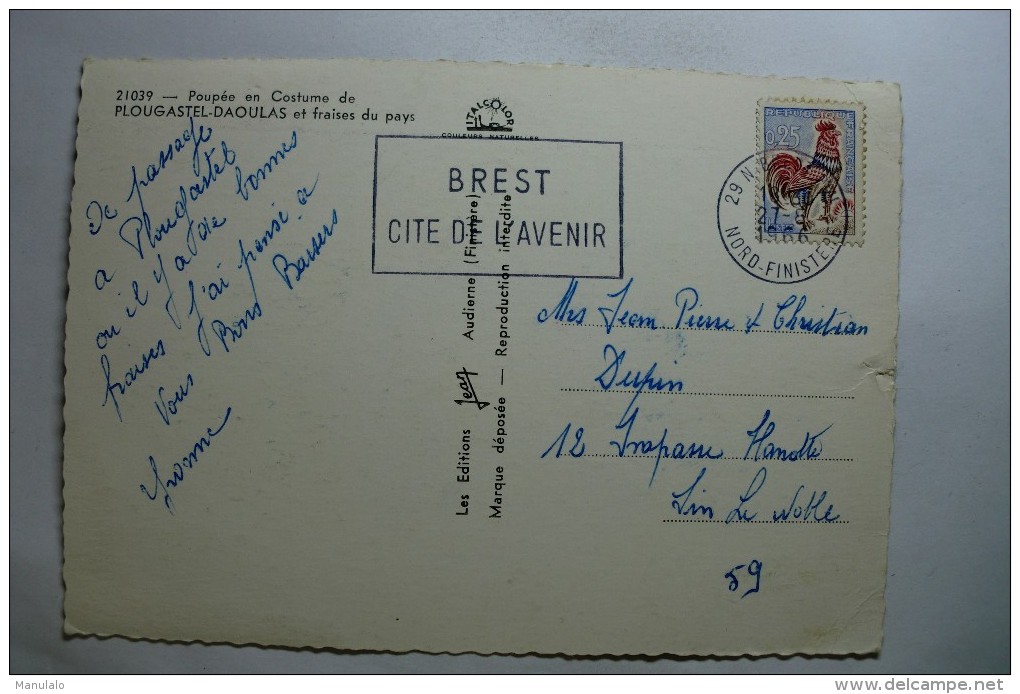 21039 — Poupée en Costume de
PLOUGASTEL-DAOULAS et fraises du pays
De passage
a Plougastel
ou il y a de bonnes
fraises j'ai pensé a
Vous Bons Baisers
Yvonne
ITALCOLOR
COULEURS NATURELLES
BREST
CITE DE L'AVENIR
Les Editions Jean Audierne (Finistère)
Marque déposée — Reproduction interdite
REPUBLIQUE FRANÇAISE
0,25
29 N
NORD-FINISTERE
Mrs Jean Pierre & Christian
Dupin
12 Impasse Hanotte
Sin Le Noble
59
Manulalo
www.delcampe.net